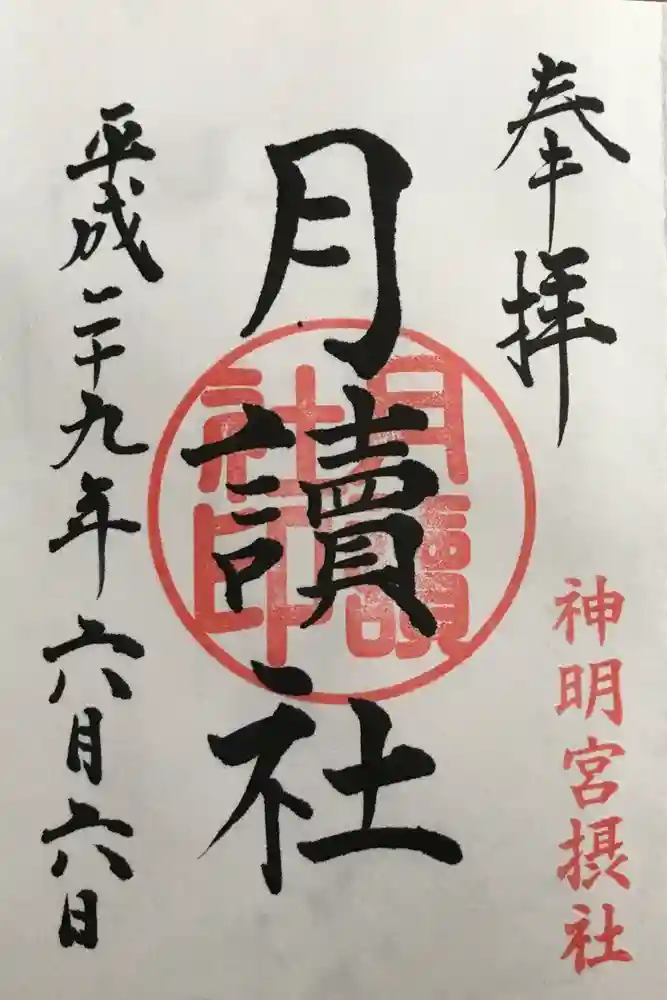 奉拝
神明宮摂社
月讀社
月讀社印
平成二十九年六月六日